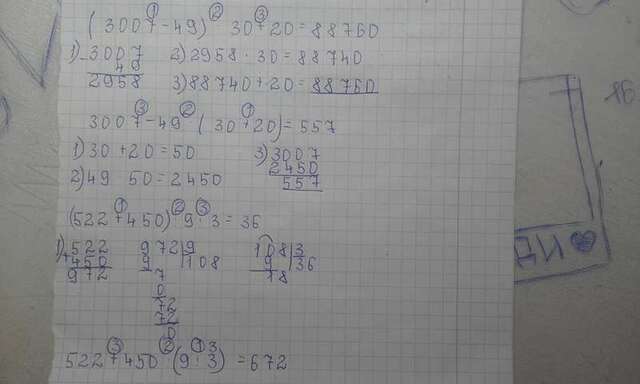 (3007-49) 30+20=88760
1) 3007 2) 2958 · 30=88740
49
2958 3) 88740+20=88760
3007-49 (30+20)=557
1) 30+20=50 3) 3007
2450
2) 49 50=2450 557
(522+450) 9:3=36
1) 522 972|9 108|3
+450 9 108 9 36
972 7 18
0
72
72
0
522+450 (9:3)=672